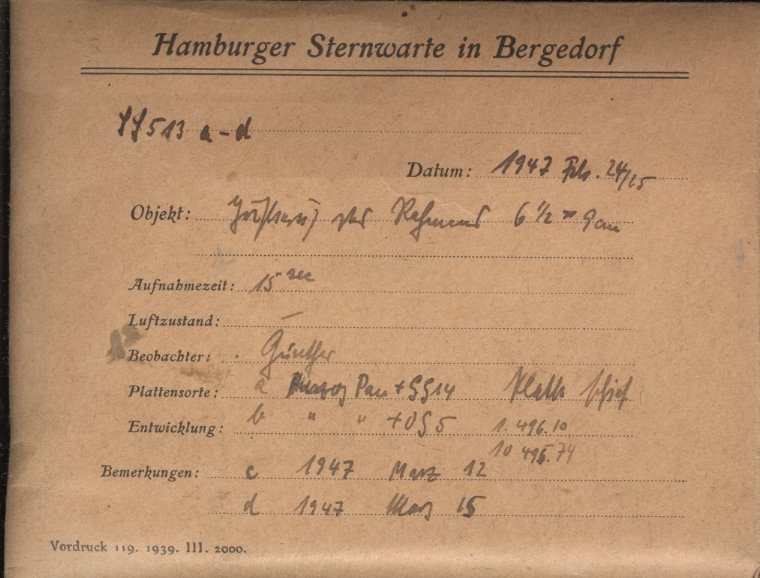 Hamburger Sternwarte in Bergedorf
513 a-d
Datum: 1947 Feb. 24/25
Objekt: 6 1/2 × 9 cm
Aufnahmezeit: 15 sec
Luftzustand: —
Beobachter: Günther
Plattensorte: a Pan + GG14 Platte schief
Entwicklung: b " " + OG5 1. 496.10
10 495.74
Bemerkungen: c 1947 März 12
d 1947 März 15
Vordruck 119. 1939. III. 2000.